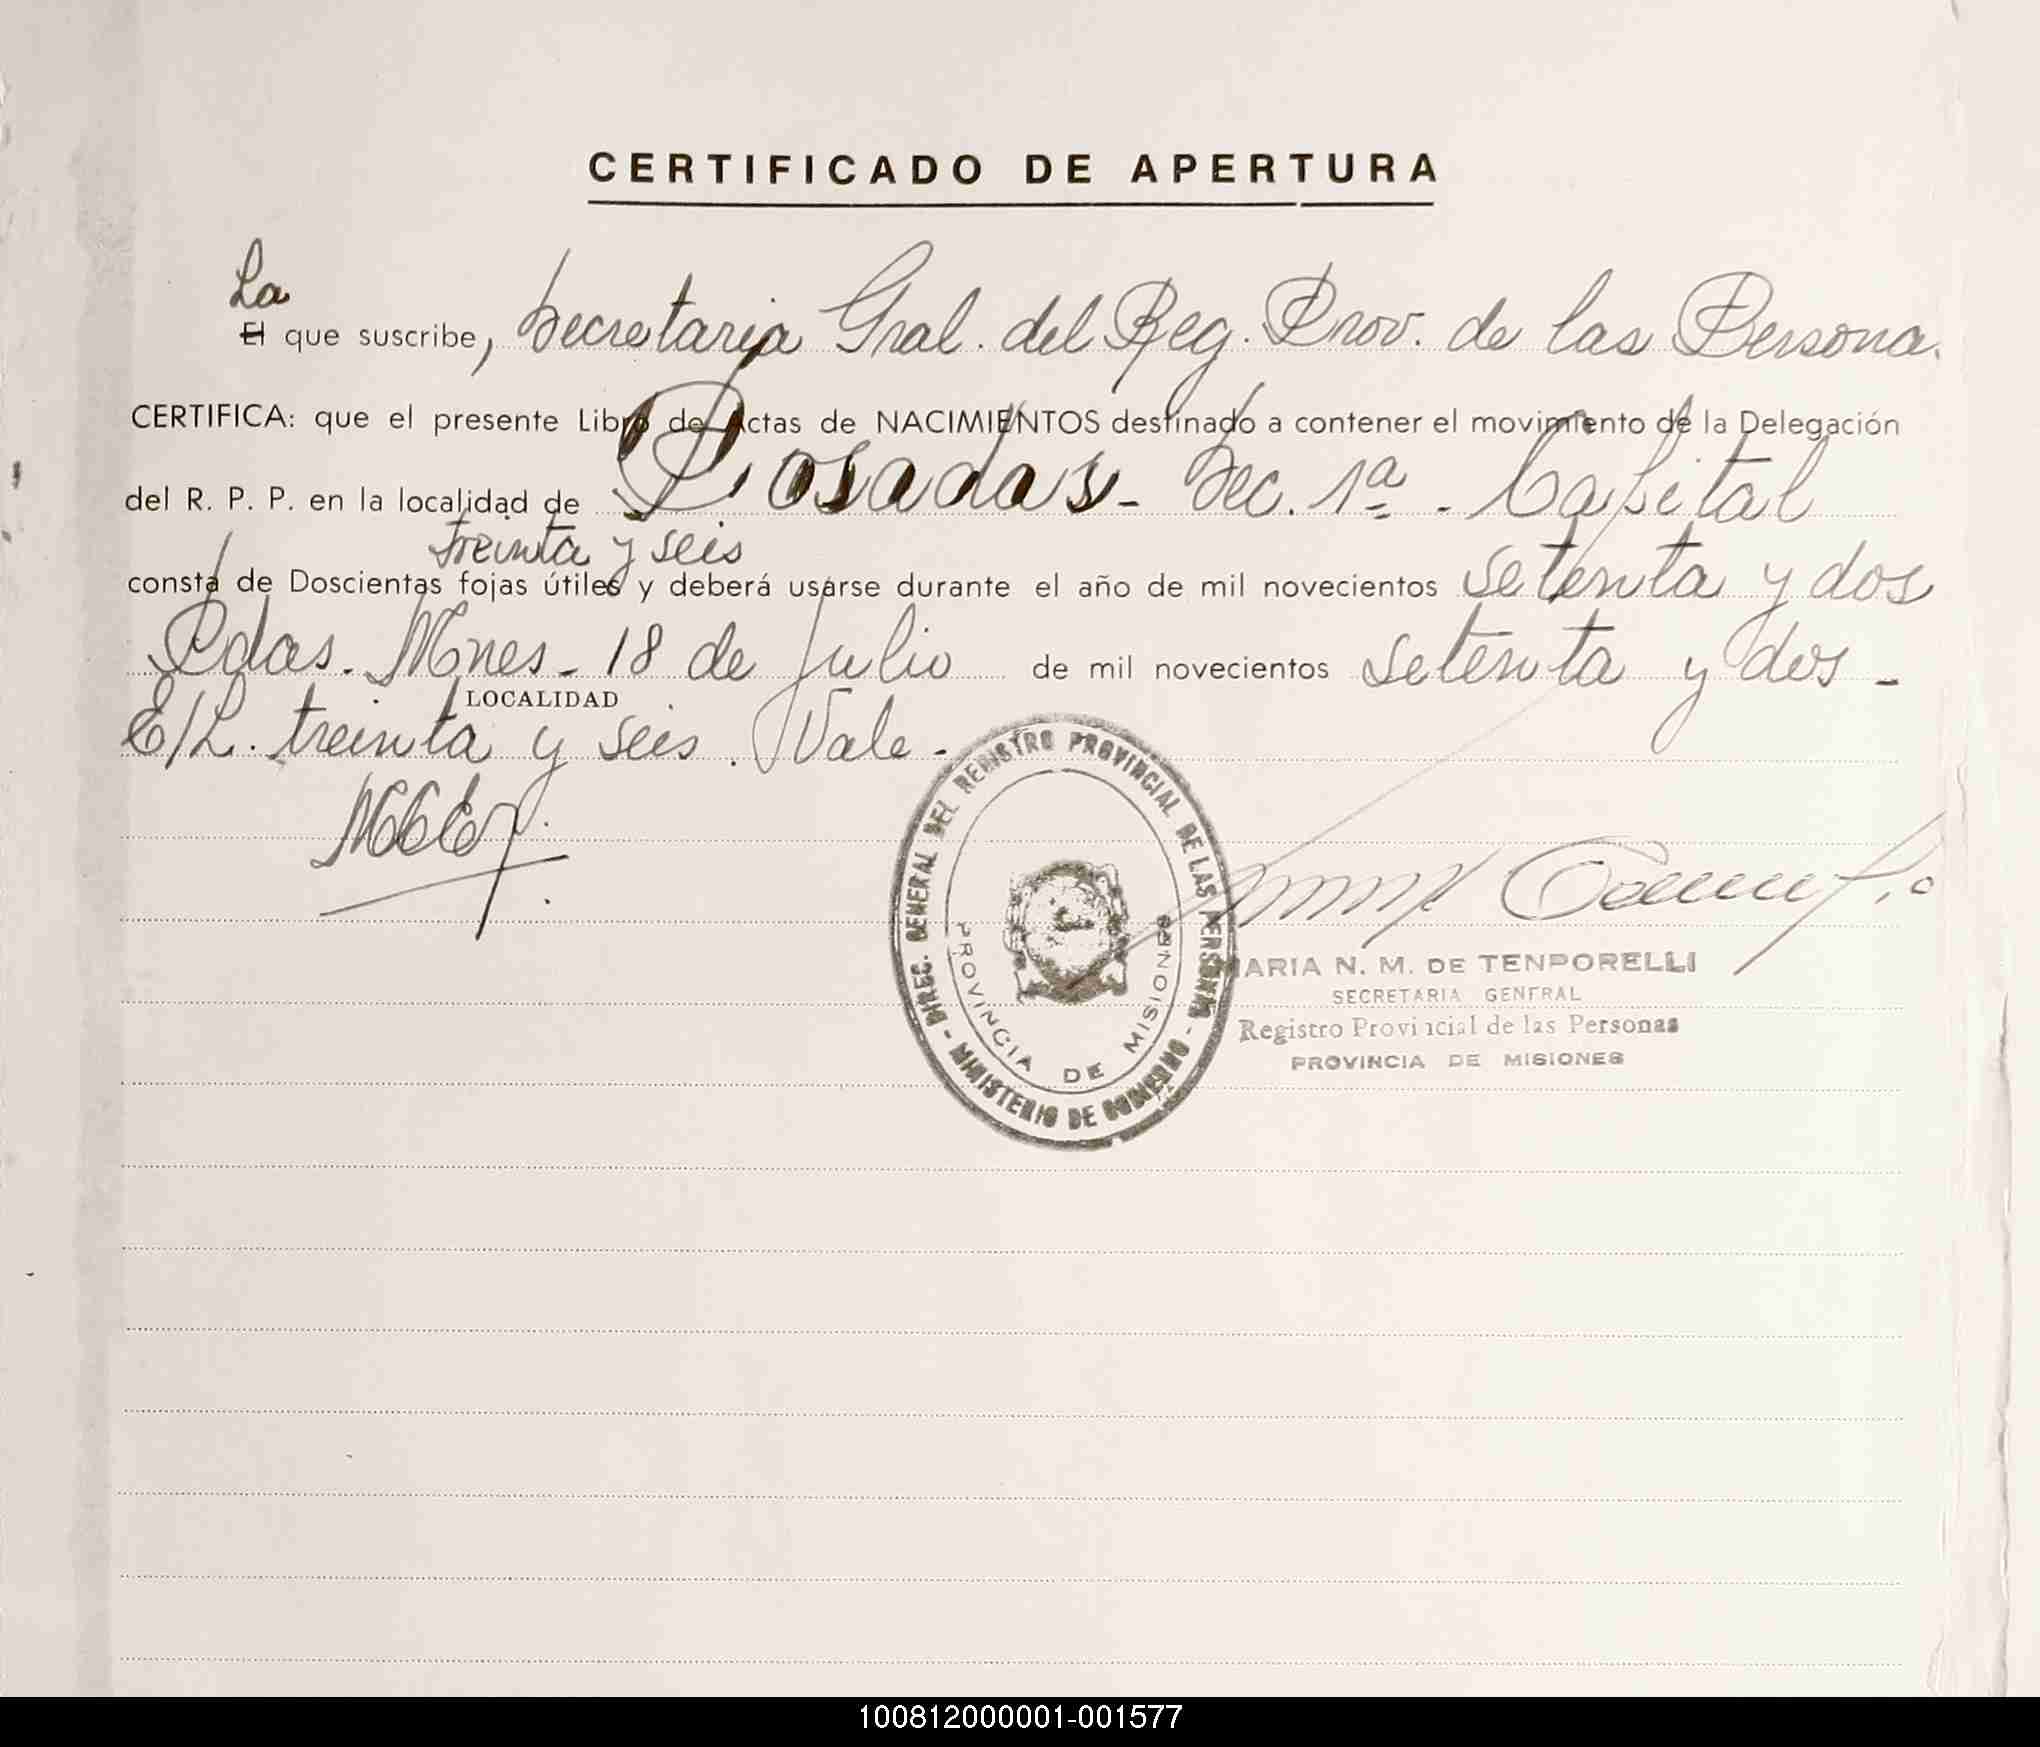 CERTIFICADO DE APERTURA
La
El que suscribe, Secretaria Gral. del Reg. Prov. de las Persona.
CERTIFICA: que el presente Libro de Actas de NACIMIENTOS destinado a contener el movimiento de la Delegación
del R. P. P. en la localidad de Posadas - Sec. 1ª - Capital
treinta y seis
consta de Doscientas fojas útiles y deberá usarse durante el año de mil novecientos setenta y dos
Pdas. Mnes - 18 de Julio de mil novecientos setenta y dos -
LOCALIDAD
E/L. treinta y seis. Vale -
DIREC. GENERAL DEL REGISTRO PROVINCIAL DE LAS PERSONAS - MINISTERIO DE GOBIERNO -
PROVINCIA DE MISIONES
MARIA N. M. DE TENPORELLI
SECRETARIA GENERAL
Registro Provincial de las Personas
PROVINCIA DE MISIONES
100812000001-001577